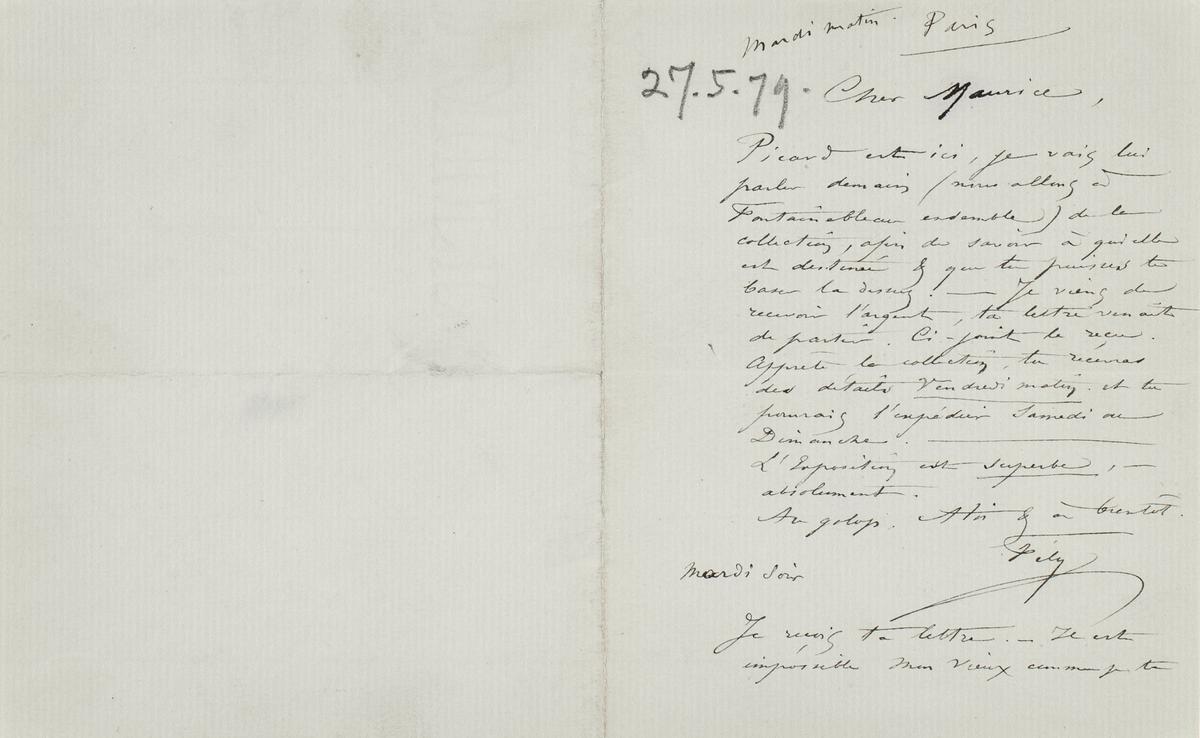 Mardi matin. Paris
27.5.79.
Cher Maurice,
Picard est ici, je vais lui
parler demain (nous allons à
Fontainebleau ensemble) de la
collection, afin de savoir à qui elle
est destinée & que tu puisses te
baser là dessus. — Je viens de
recevoir l'argent, ta lettre venait
de partir. Ci-joint le reçu.
Apprête la collection, tu recevras
des détails Vendredi matin et tu
pourrais l'expédier Samedi ou
Dimanche. —
L'Exposition est superbe, —
absolument.
Au galop. A toi & à bientôt.
Mardi soir
Je reçois ta lettre. — Il est
impossible mon vieux comme je te